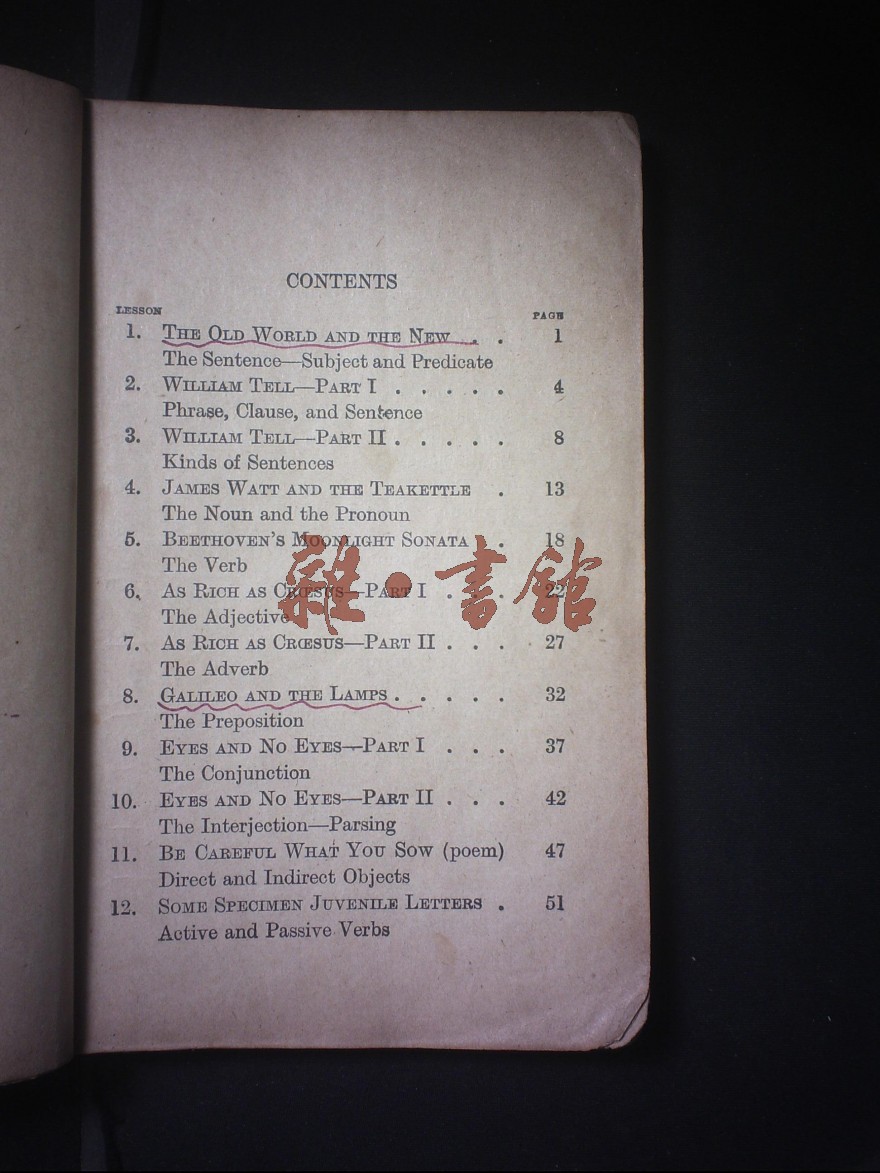 CONTENTS
LESSON PAGE
1. THE OLD WORLD AND THE NEW . . 1
The Sentence—Subject and Predicate
2. WILLIAM TELL—PART I . . . . . 4
Phrase, Clause, and Sentence
3. WILLIAM TELL—PART II . . . . . 8
Kinds of Sentences
4. JAMES WATT AND THE TEAKETTLE . 13
The Noun and the Pronoun
5. BEETHOVEN'S MOONLIGHT SONATA . . 18
The Verb
6. AS RICH AS CRŒSUS—PART I . . . 22
The Adjective
7. AS RICH AS CRŒSUS—PART II . . . 27
The Adverb
8. GALILEO AND THE LAMPS . . . . . 32
The Preposition
9. EYES AND NO EYES—PART I . . . 37
The Conjunction
10. EYES AND NO EYES—PART II . . . 42
The Interjection—Parsing
11. BE CAREFUL WHAT YOU SOW (poem) 47
Direct and Indirect Objects
12. SOME SPECIMEN JUVENILE LETTERS . 51
Active and Passive Verbs
雜·書館